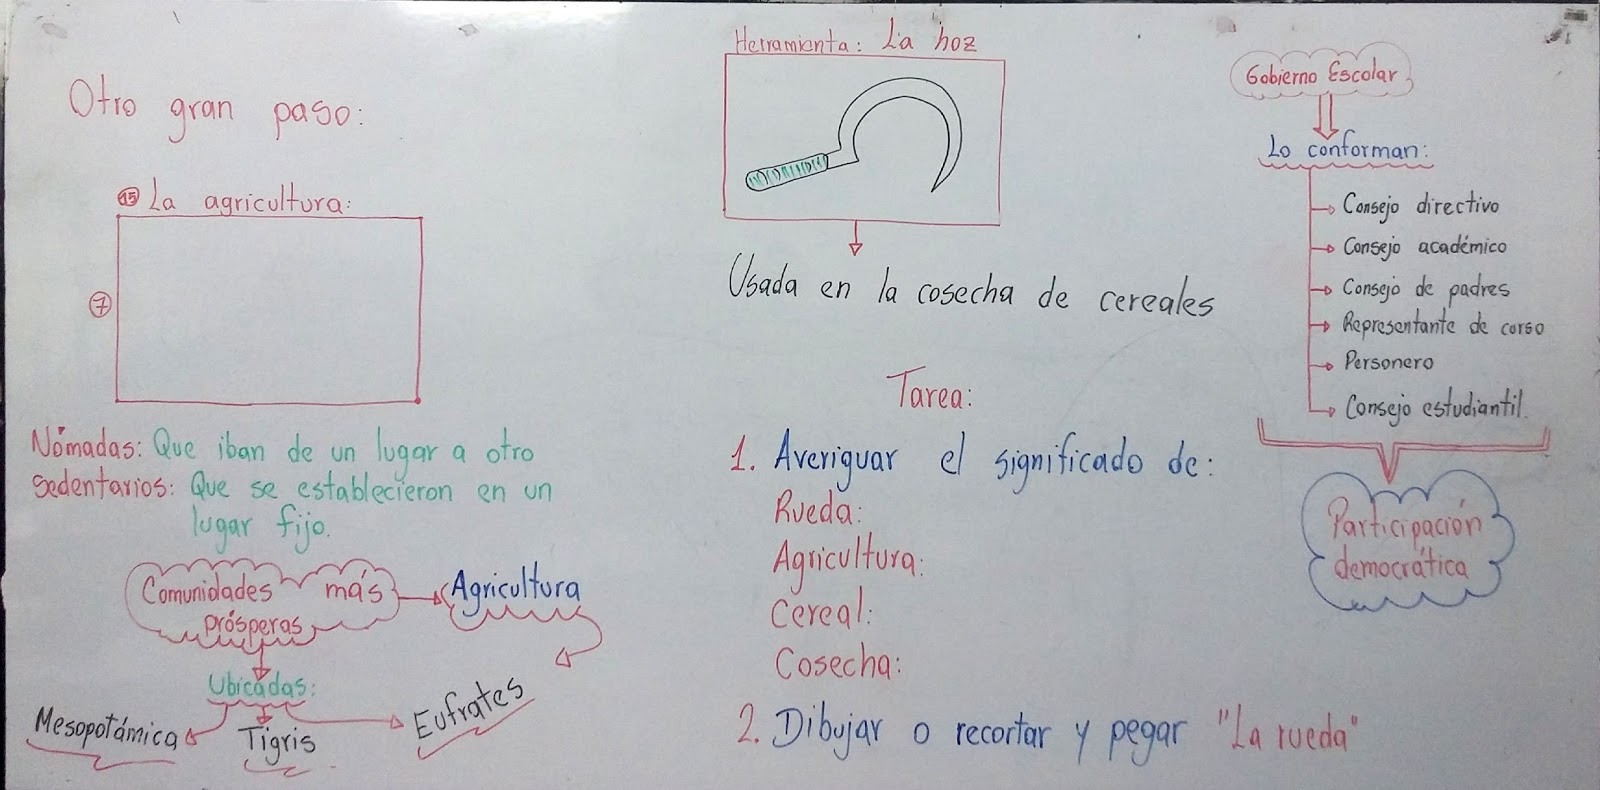 Otro gran paso:
15 La agricultura:
7
Nómadas: Que iban de un lugar a otro
Sedentarios: Que se establecieron en un
lugar fijo.
Comunidades más
prósperas
Agricultura
Ubicadas:
Mesopotámica
Tigris
Eufrates
Herramienta: La hoz
Usada en la cosecha de cereales
Tarea:
1. Averiguar el significado de:
Rueda:
Agricultura:
Cereal:
Cosecha:
2. Dibujar o recortar y pegar "La rueda"
Gobierno Escolar
Lo conforman:
Consejo directivo
Consejo académico
Consejo de padres
Representante de curso
Personero
Consejo estudiantil.
Participación
democrática